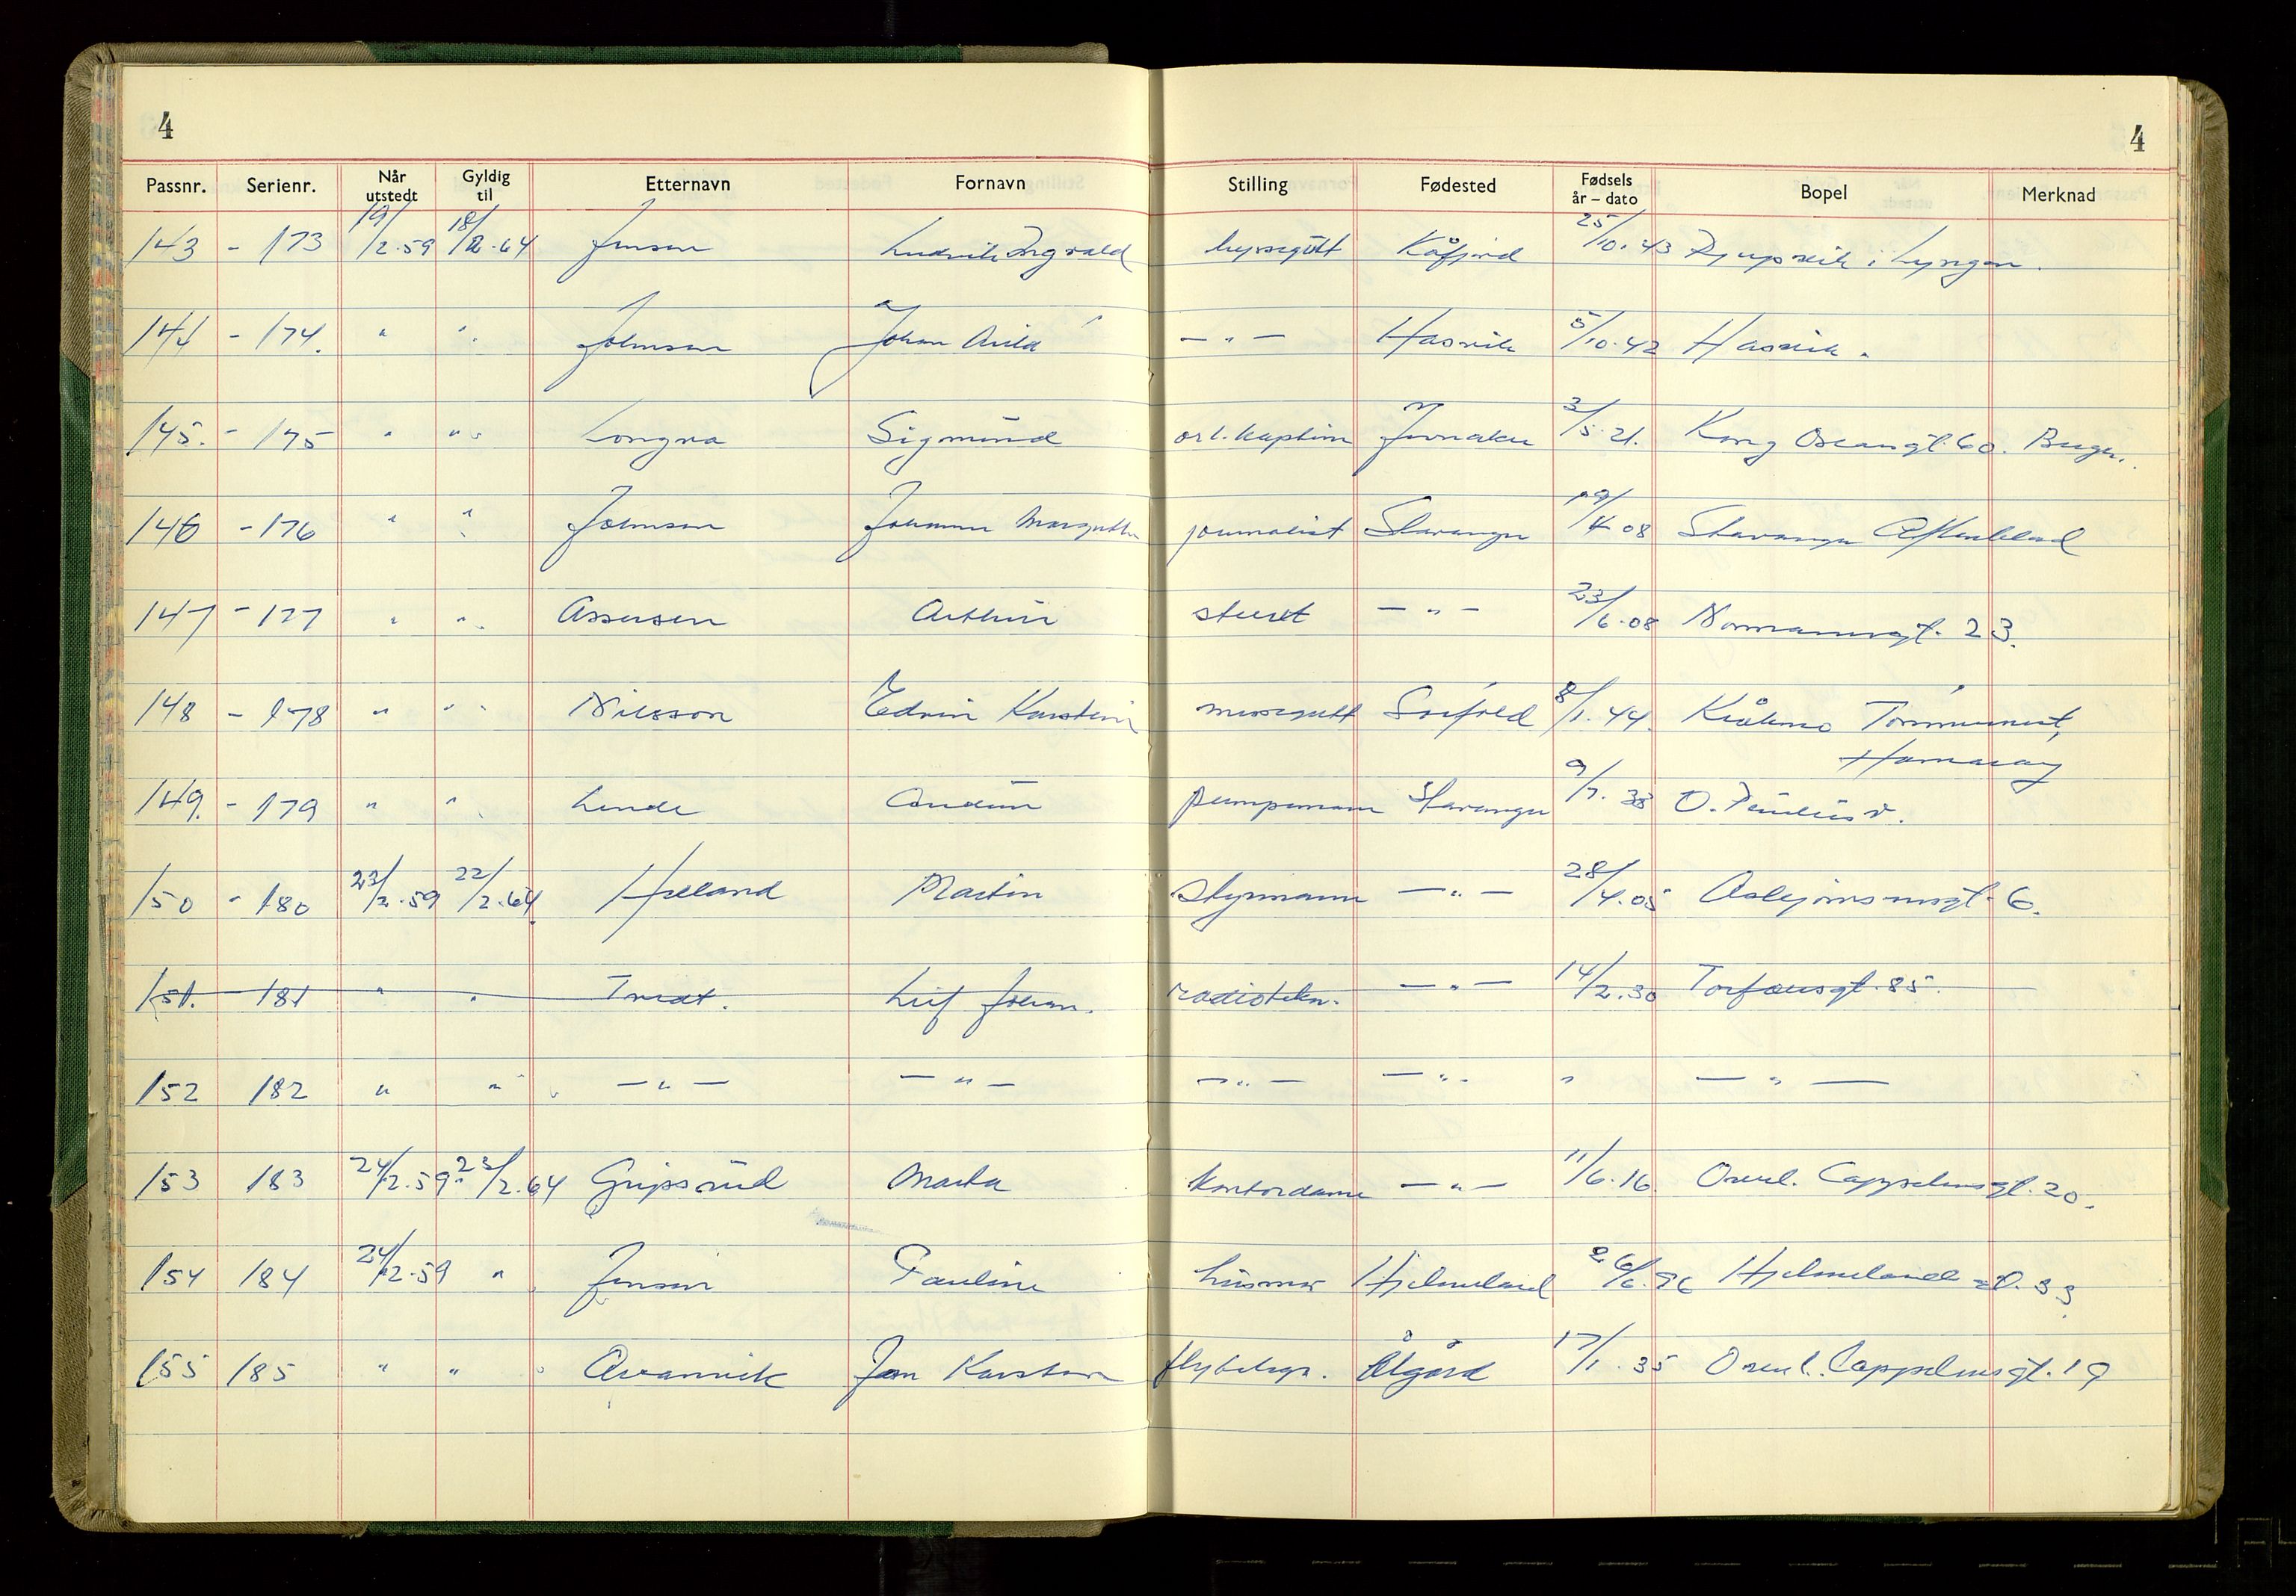 4 4
Passnr. Serienr. Når utstedt Gyldig til Etternavn Fornavn Stilling Fødested Fødsels år – dato Bopel Merknad
143 - 173 19/2.59 18/2.64 Jensen Ludvik Ingvald byssegutt Kåfjord 25/10.43 Djupvik i Lyngen.
144 - 174. " " Johnsen Johan Arild — " — Hasvik 5/10.42 Hasvik.
145. - 175 " " Longva Sigmund Jevnaker 3/5.21. Kong Oscarsgt. 60. Bergen.
146 - 176 " " Johnsen Johanne Margrethe journalist Stavanger 19/4.08 Stavanger Aftenblad
147 - 177 " " Assersen Arthur stuert — " — 23/6.08 Normannsgt. 23.
148 - 178 " " Nilsson Edvin Karstein messegutt Sørfold 8/1.44. Kråkmo Tømmernest,
Hamarøy
149. - 179 " " Lende Audun pumpemann Stavanger 9/7.38 O. Paulus v.
150 - 180 23/2.59 22/2.64 Helland Martin Styrmann — " — 28/4.05 Asbjørnsensgt. 6.
151. 181 " " Tvedt. Leif Johan. radiotekn. — " — 14/2.30 Torfæusgt. 85.
152 182 " " — " — — " — — " — — " — " — " —
153 183 24/2.59 23/2.64 Gripsrud Marta kontordame — " — 11/6.16. Overl. Cappelensgt. 20.
154 184 24/2.59 " Jensen Pauline husmor Hjelmeland 26/6.96 Hjelmelandsgt. 33
155 185 " " Jan Karsten Ålgård 17/1.35 Overl. Cappelensgt. 19